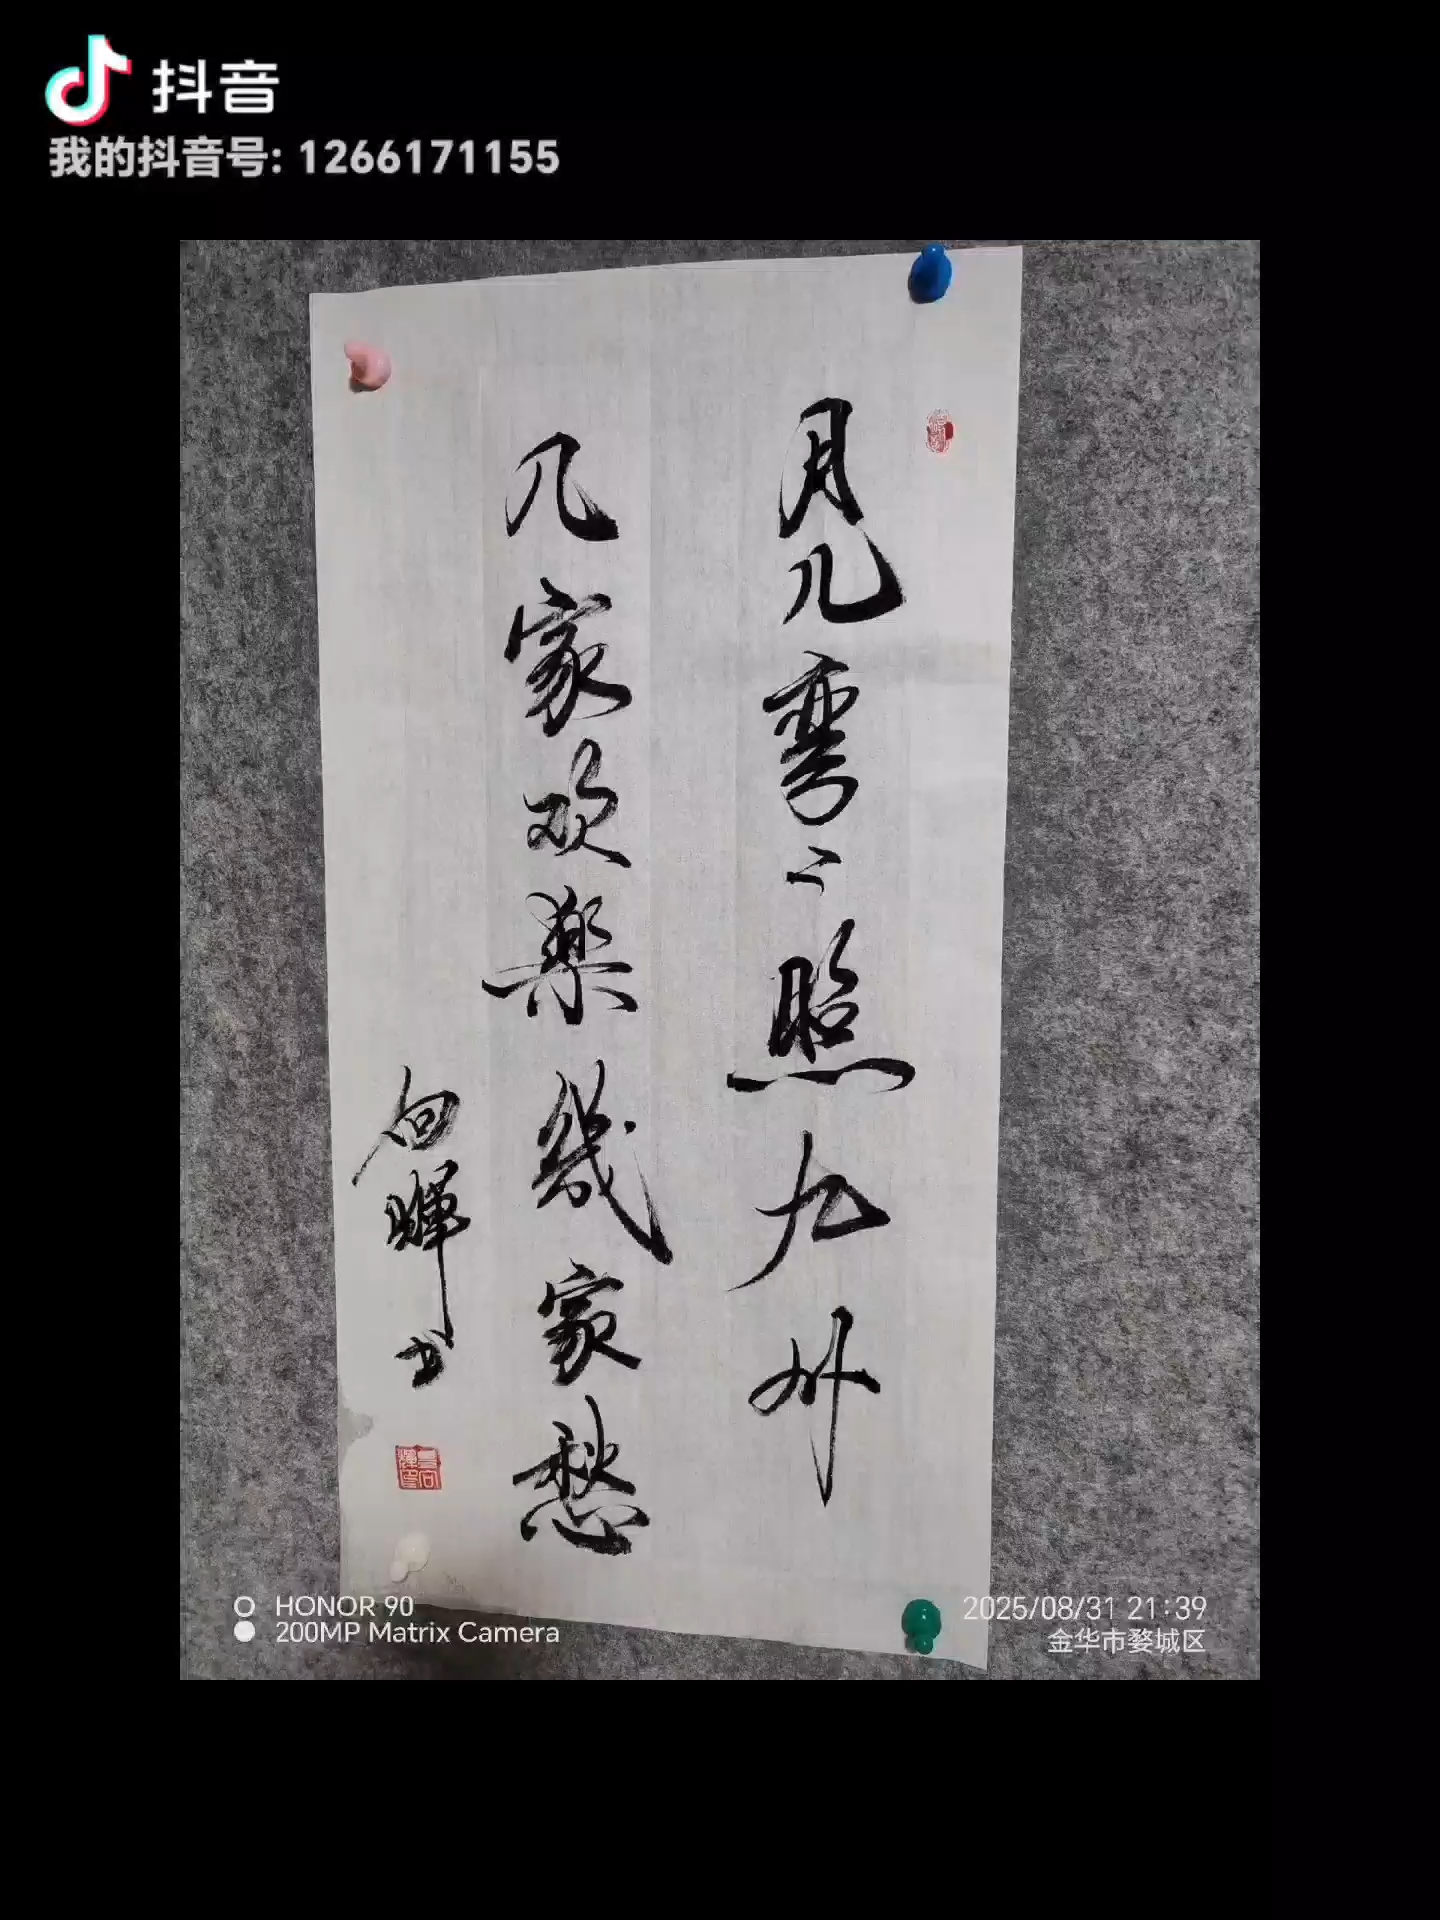 抖音
我的抖音号: 1266171155
月儿弯〻照九州
几家欢樂幾家愁
向輝书
HONOR 90
200MP Matrix Camera
2025/08/31 21:39
金华市婺城区